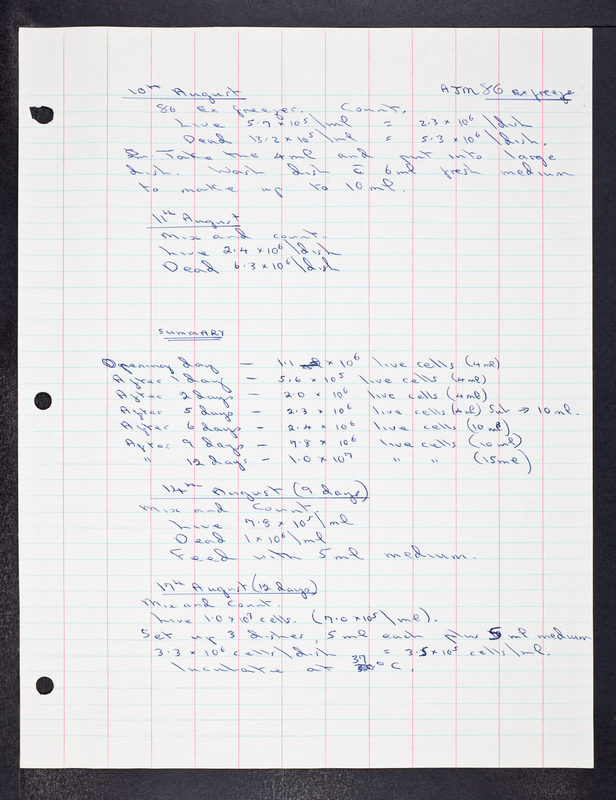 10th August AJM 86 Ex freeze
86 Ex freezer. Count.
Live 5.7 × 10⁵ \ ml = 2.3 × 10⁶ \ dish
Dead 13.2 × 10⁵ \ ml = 5.3 × 10⁶ \ dish.
Take the 4 ml and put into large
dish. Wash dish c̄ 6 ml fresh medium
to make up to 10 ml.
11th August
Mix and count.
Live 2.4 × 10⁶ \ dish
Dead 6.3 × 10⁶ \ dish
SUMMARY
Opening day — 1.1 × 10⁶ live cells (4 ml)
After 1 day — 5.6 × 10⁵ live cells (4 ml)
After 2 days — 2.0 × 10⁶ live cells (4 ml)
After 5 days — 2.3 × 10⁶ live cells (4 ml) Sub → 10 ml.
After 6 days — 2.4 × 10⁶ live cells (10 ml)
After 9 days — 7.8 × 10⁶ live cells (10 ml)
" 12 days — 1.0 × 10⁷ " " (15 ml)
14th August (9 days)
Mix and Count.
Live 7.8 × 10⁵ \ ml
Dead 1 × 10⁶ \ ml
Feed with 5 ml medium.
17th August (12 days)
Mix and Count.
Live 1.0 × 10⁷ cells. (7.0 × 10⁵ \ ml).
Set up 3 dishes, 5 ml each plus 5 ml medium
3.3 × 10⁶ cells \ dish = 3.5 × 10⁵ cells \ ml.
Incubate at 37° C.